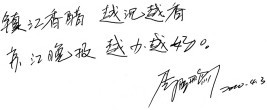 镇江香醋 越沉越香
苏江晚报 越办越好。
2020.4.3